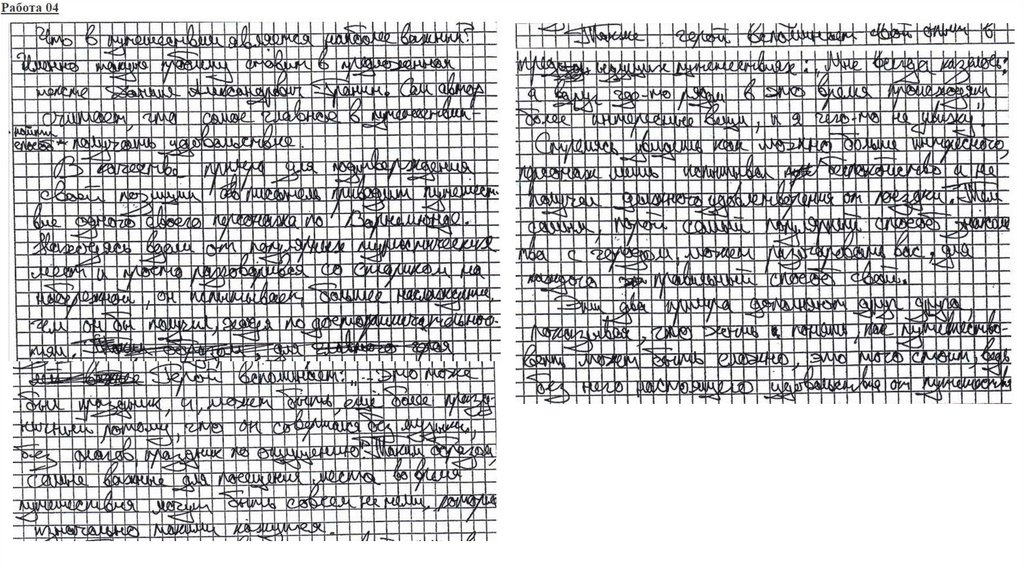 Работа 04
Что в путешествии является наиболее важным?
Именно такую проблему ставит в предложенном
тексте Даниил Александрович Гранин. Сам автор
считает, что самое главное в путешествии -
найти
способ получать удовольствие.
В качестве примера для подтверждения
своей позиции писатель приводит путешест
вие одного своего персонажа по Варнемюнде.
Находясь вдали от популярных туристических
мест и просто разговаривая со стариком на
набережной, он испытывает большее наслаждение,
чем он бы получил, ходя по достопримечательнос-
тям. Таким образом, для главного героя
Герой вспоминает: „...это тоже
был праздник, и, может быть, еще более празд-
ничный, потому, что он совершался без музыки,
без флагов, праздник по ощущению". Таким образом,
самые важные для посещения места во время
путешествия могут быть совсем не теми, которые
изначально такими кажутся.
Также герой вспоминает свой опыт в
предыдущих путешествиях: „Мне всегда казалось:
а вдруг где-то рядом в это время происходят
более интересные вещи, и я чего-то не увижу."
Стремясь увидеть как можно больше интересного,
персонаж лишь испытывал беспокойство и не
получал должного удовлетворения от поездки. Тем
самым, порой самый популярный способ знакомс
тва с городом, может разочаровать вас, для
каждого правильный способ свой.
Эти два примера дополняют друг друга,
показывая, что хоть и понять, как путешество-
вать, может быть сложно, это того стоит, ведь
без него настоящего удовольствие от путешествия